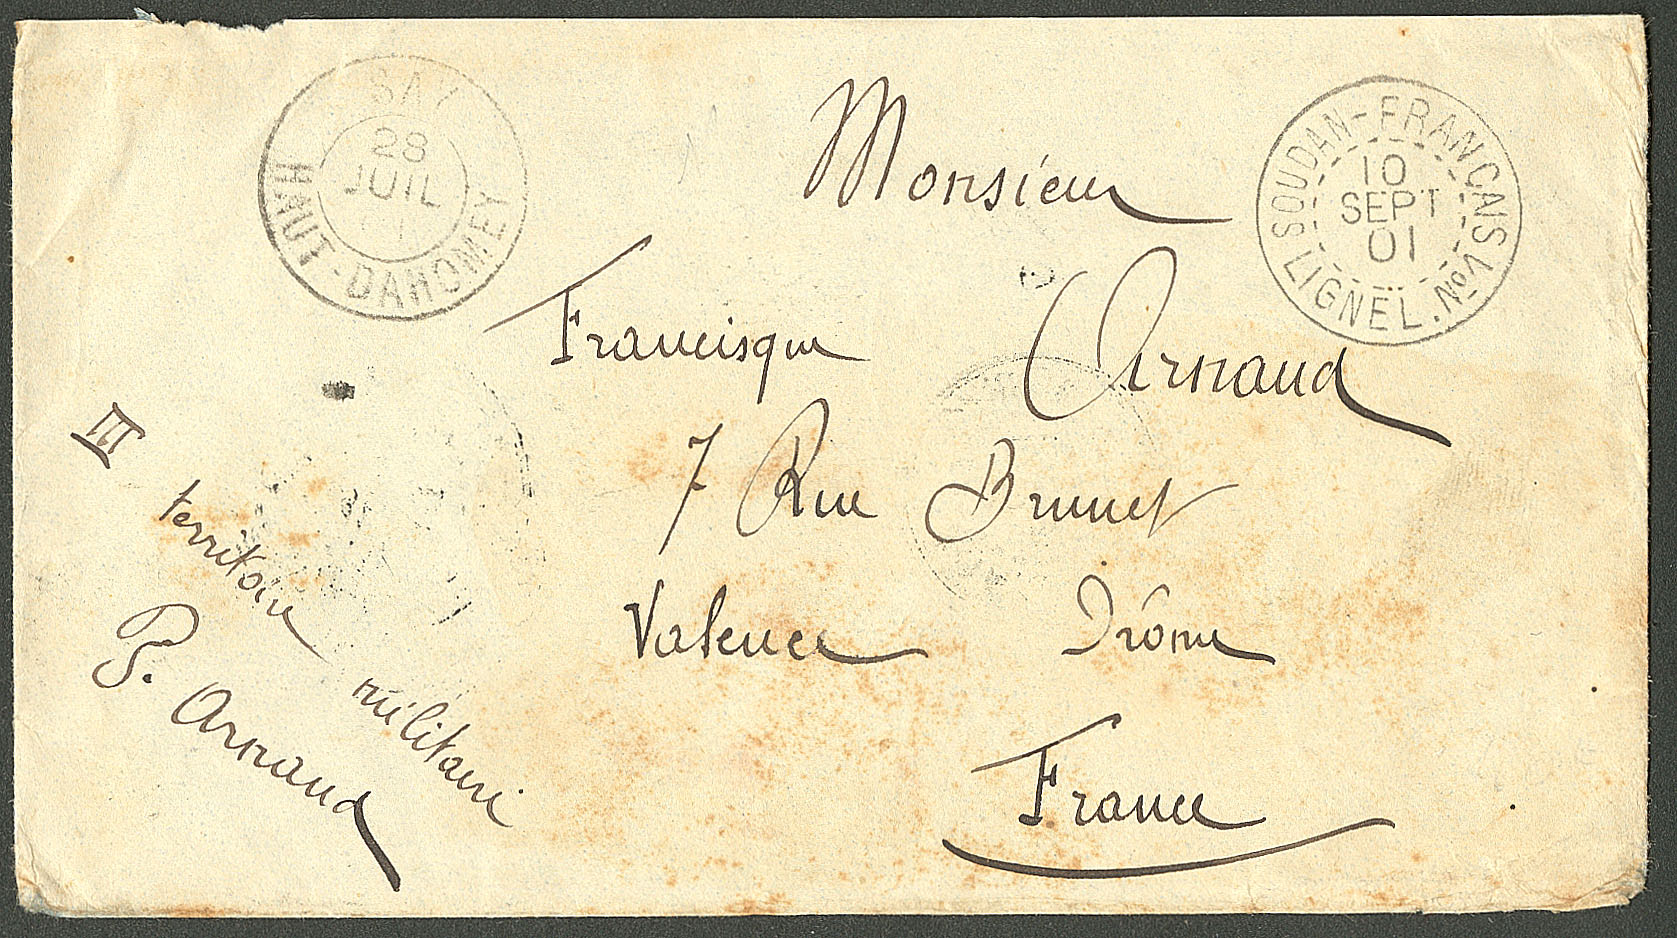 SAY
28
JUIL
HAUT-DAHOMEY
SOUDAN-FRANÇAIS Von
10
SEPT
01
LIGNEL.N
Monsieur
Francisque Arnaud
7 Rue Brunet
Valence Drôme
France
III territoire militaire
P. Arnaud